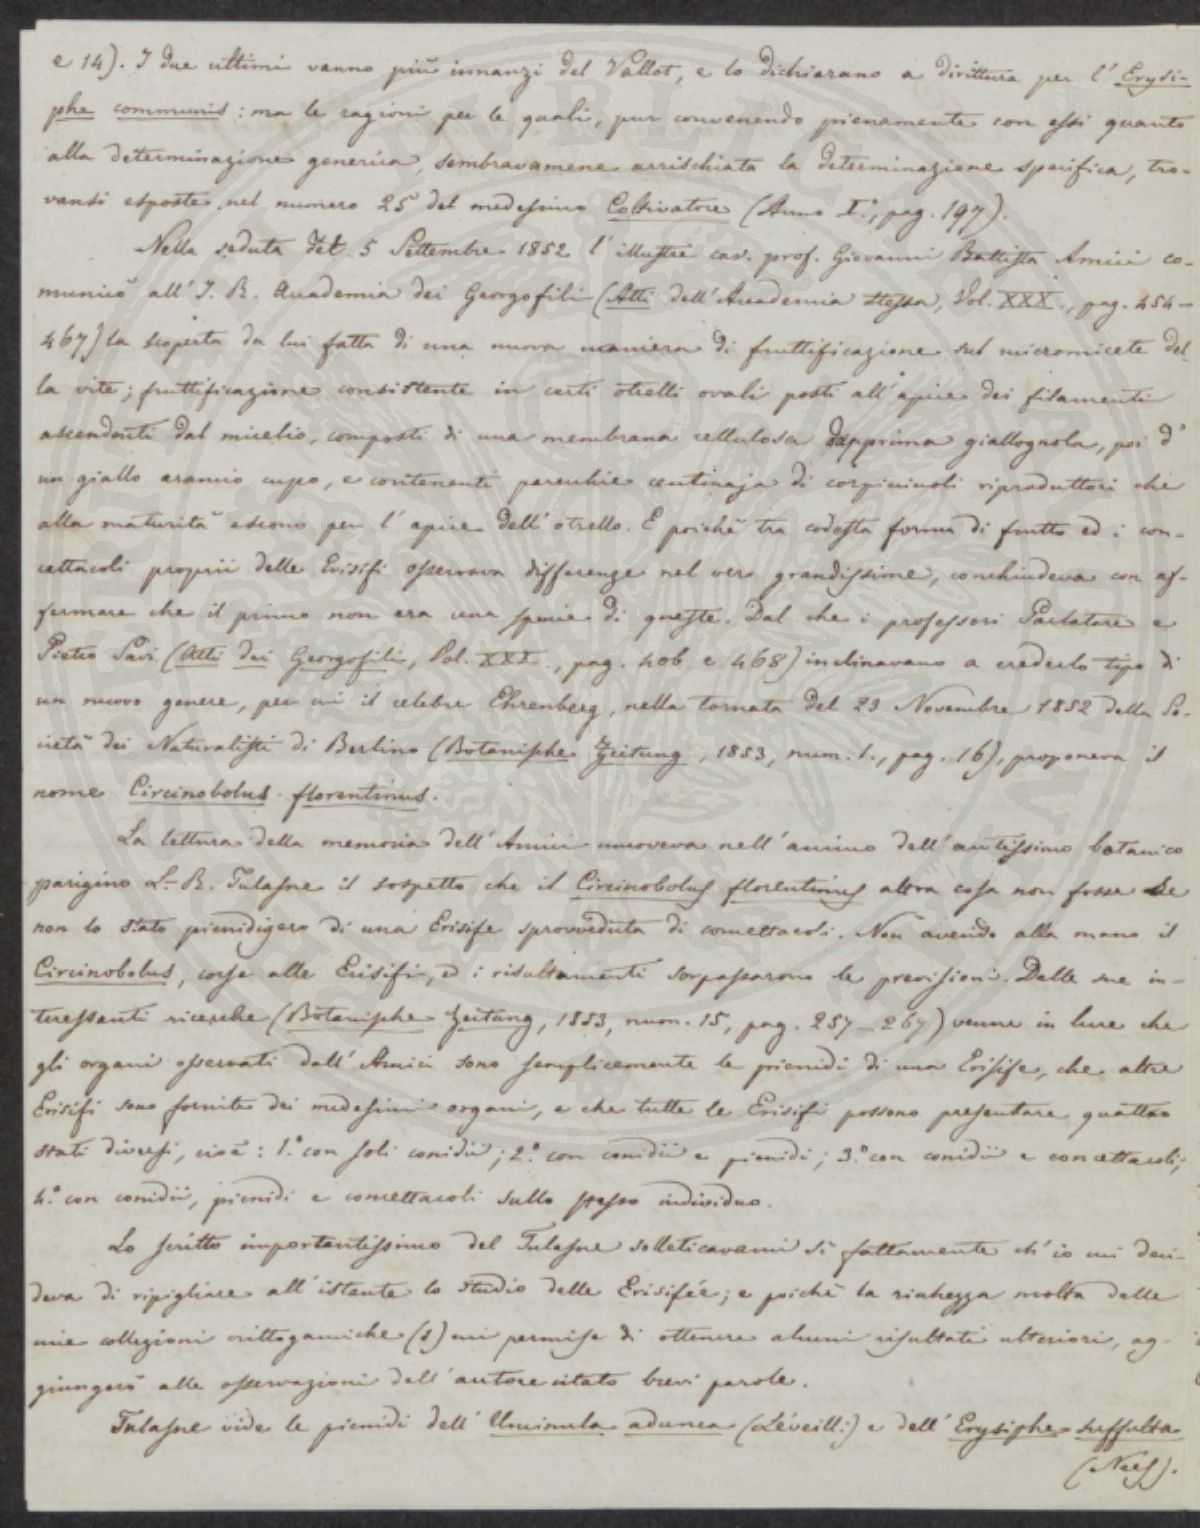 e 14). I due ultimi vanno più innanzi del Vallot, e lo dichiarano a dirittura per l'Erysi-
phe communis: ma le ragioni per le quali, pur convenendo pienamente con essi quanto
alla determinazione generica, sembravamene arrischiata la determinazione specifica, tro-
vansi esposte nel numero 25 del medesimo Coltivatore (Anno I.°, pag. 197).
Nella seduta del 5 Settembre 1852 l'illustre cav. prof. Giovanni Battista Amici co-
municò all'I. R. Accademia dei Georgofili (Atti dell'Accademia stessa, Vol. XXX., pag. 454-
467) la scoperta da lui fatta di una nuova maniera di fruttificazione sul micromicete del-
la vite; fruttificazione consistente in certi otrelli ovali posti all'apice dei filamenti
ascendenti dal micelio, composti di una membrana cellulosa dapprima giallognola, poi d'
un giallo arancio cupo, e contenenti parecchie centinaja di corpicciuoli riproduttori che
alla maturità escono per l'apice dell'otrello. E poichè tra codesta forma di frutto ed i con-
cettacoli proprii delle Erisifi osservava differenze nel vero grandissime, conchiudeva con af-
fermare che il primo non era una specie di queste. Dal che i professori Parlatore e
Pietro Savi (Atti dei Georgofili, Vol. XXX., pag. 406 e 468) inclinavano a crederlo tipo di
un nuovo genere, per cui il celebre Ehrenberg, nella tornata del 23 Novembre 1852 della So-
cietà dei Naturalisti di Berlino (Botanische Zeitung, 1853, num. 1., pag. 16), proponeva il
nome Circinobolus florentinus.
La lettura della memoria dell'Amici muoveva nell'animo dell'acutissimo botanico
parigino L.-R. Tulasne il sospetto che il Circinobolus florentinus altra cosa non fosse se
non lo stato picnidigero di una Erisife sprovveduta di concettacoli. Non avendo alla mano il
Circinobolus, corse alle Erisifi, ed i risultamenti sorpassarono le previsioni. Dalle sue in-
teressanti ricerche (Botanische Zeitung, 1853, num. 15, pag. 257-267) venne in luce che
gli organi osservati dall'Amici sono semplicemente le picnidi di una Erisife, che altre
Erisifi sono fornite dei medesimi organi, e che tutte le Erisifi possono presentare quattro
stati diversi, cioè: 1.° con soli conidii; 2.° con conidii e picnidi; 3.° con conidii e concettacoli;
4.° con conidii, picnidi e concettacoli sullo stesso individuo.
Lo scritto importantissimo del Tulasne solleticavami sì fattamente ch'io mi deci-
deva di ripigliare all'istante lo studio delle Erisifée; e poichè la ricchezza molta delle
mie collezioni crittogamiche (1) mi permise di ottenere alcuni risultati ulteriori, ag-
giungerò alle osservazioni dell'autore citato brevi parole.
Tulasne vide le picnidi dell'Uncinula adunca (Léveill:) e dell'Erysiphe suffulta
(Nees).